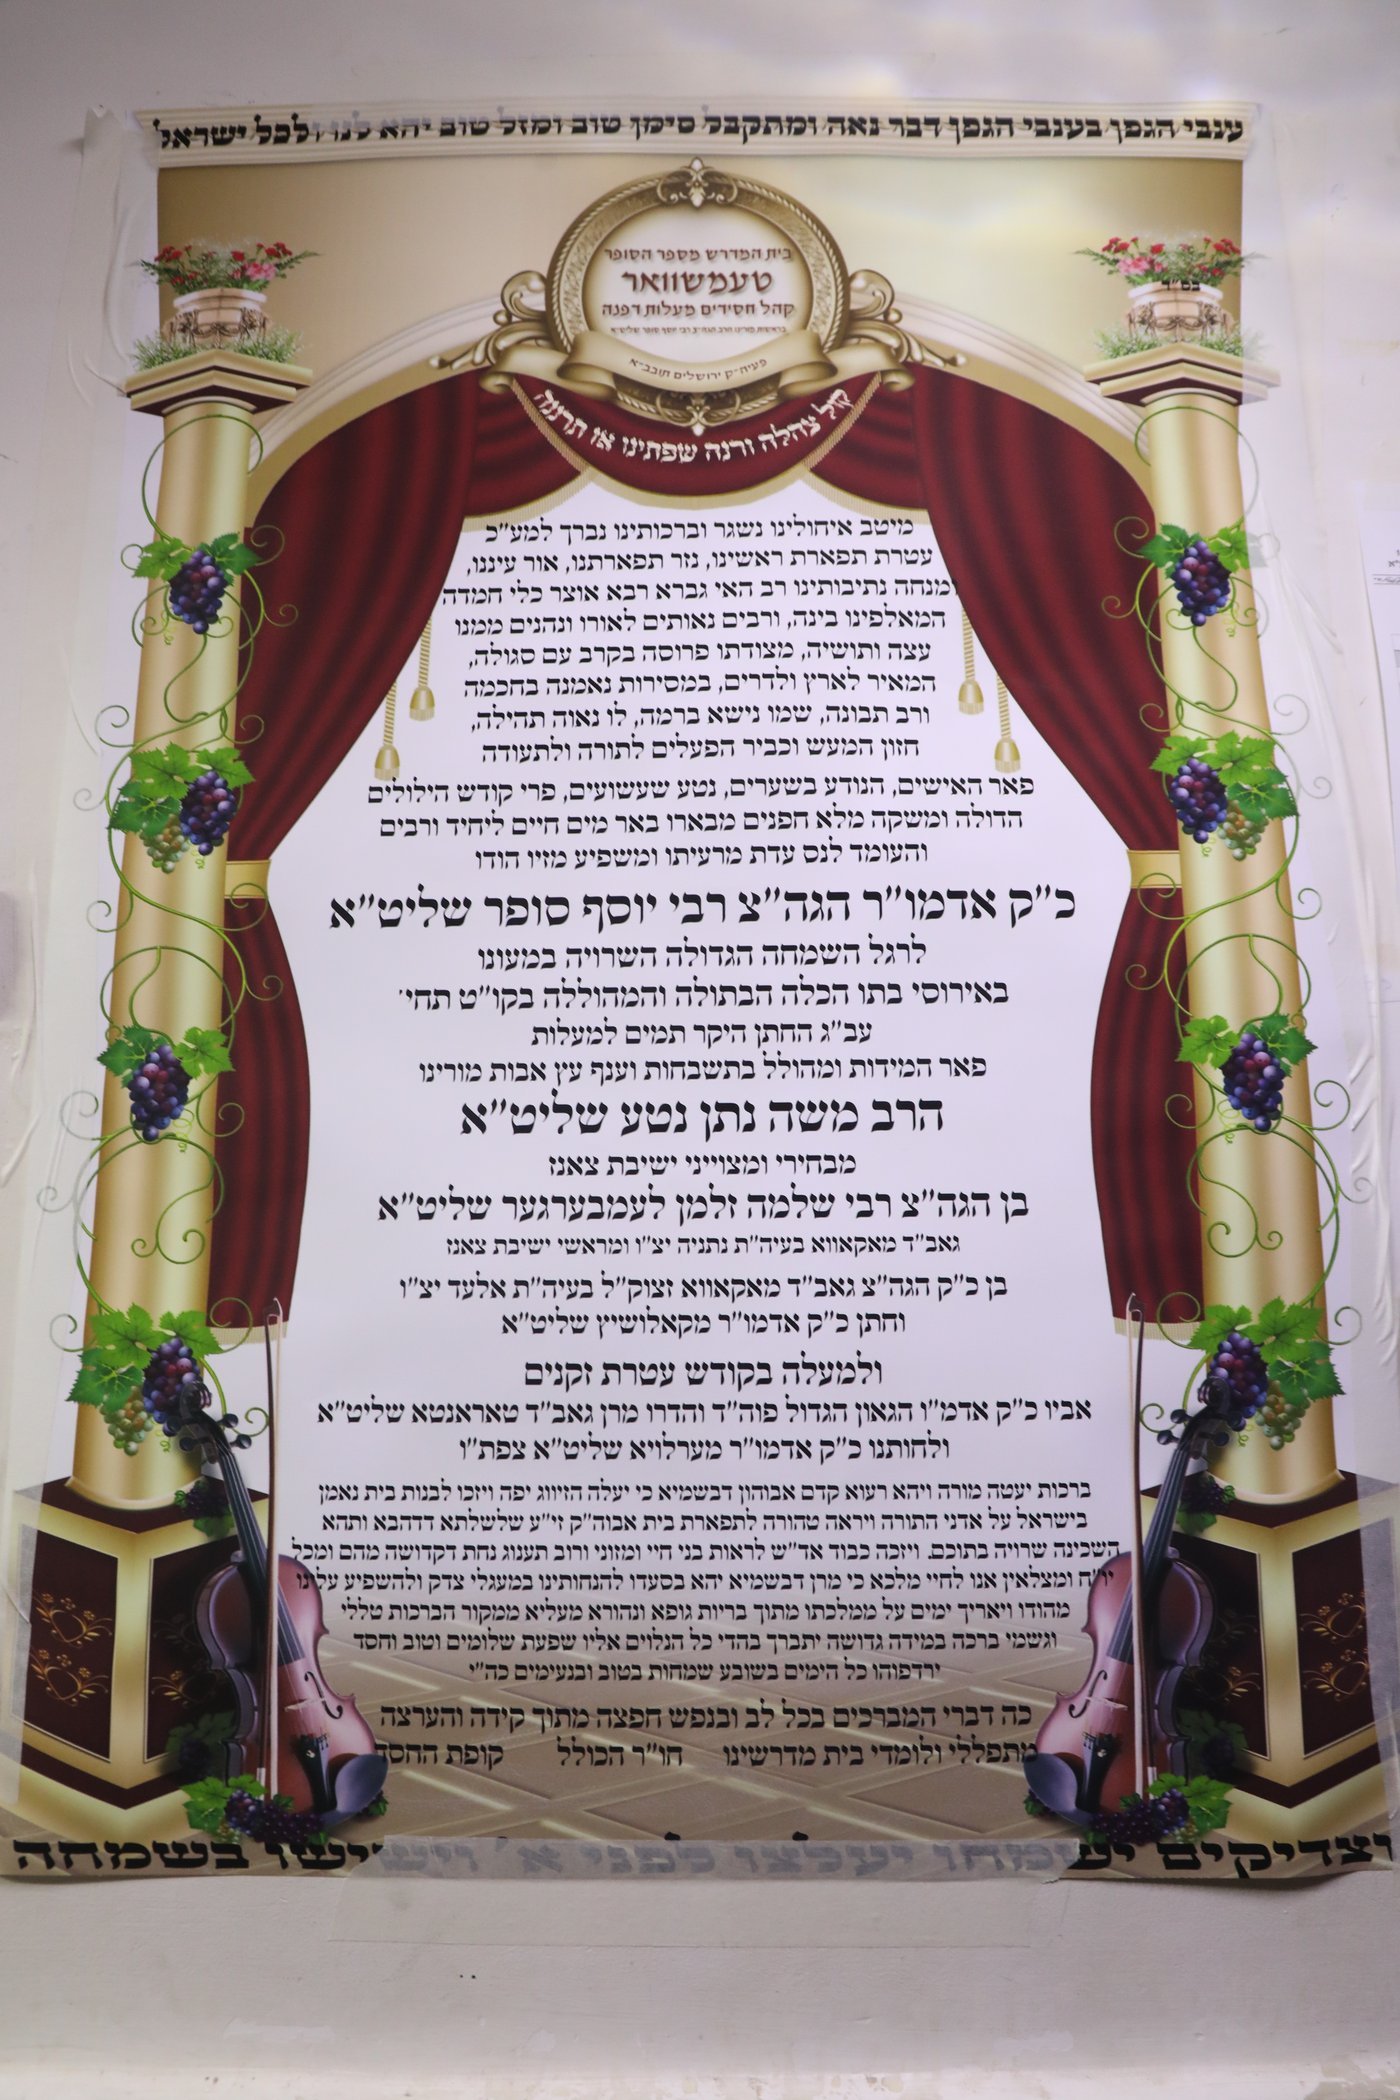 ענבי הגפן בענבי הגפן דבר נאה ומתקבל סימן טוב ומזל טוב יהא לנו ולכל ישראל
בס"ד
בית המדרש מספר הסופר
טעמשוואר
קהל חסידים מעלות דפנה
בראשות מורינו הרב הגה"צ רבי יוסף סופר שליט"א
פעיה"ק ירושלים תובב"א
קול צהלה ורנה שפתינו או תרננה
מיטב איחולינו נשגר וברכותינו נברך למע"כ
עטרת תפארת ראשינו, נזר תפארתנו, אור עיננו,
ומנחה נתיבותינו רב האי גברא רבא אוצר כלי חמדה
המאלפינו בינה, ורבים נאותים לאורו ונהנים ממנו
עצה ותושיה, מצודתו פרוסה בקרב עם סגולה,
המאיר לארץ ולדרים, במסירות נאמנה בחכמה
ורב תבונה, שמו נישא ברמה, לו נאוה תהילה,
חזון המעש וכביר הפעלים לתורה ולתעודה
פאר האישים, הנודע בשערים, נטע שעשועים, פרי קודש הילולים
הדולה ומשקה מלא חפנים מבארו באר מים חיים ליחיד ורבים
והעומד לנס עדת מרעיתו ומשפיע מזיו הודו
כ"ק אדמו"ר הגה"צ רבי יוסף סופר שליט"א
לרגל השמחה הגדולה השרויה במעונו
באירוסי בתו הכלה הבתולה והמהוללה בקו"ט תחי'
עב"ג החתן היקר תמים למעלות
פאר המידות ומהולל בתשבחות וענף עץ אבות מורינו
הרב משה נתן נטע שליט"א
מבחירי ומצוייני ישיבת צאנז
בן הגה"צ רבי שלמה זלמן לעמבערגער שליט"א
גאב"ד מאקאווא בעיה"ת נתניה יצ"ו ומראשי ישיבת צאנז
בן כ"ק הגה"צ גאב"ד מאקאווא זצוק"ל בעיה"ת אלעד יצ"ו
וחתן כ"ק אדמו"ר מקאלושיץ שליט"א
ולמעלה בקודש עטרת זקנים
אביו כ"ק אדמ"ו הגאון הגדול פוה"ד והדרו מרן גאב"ד טאראנטא שליט"א
ולחותנו כ"ק אדמו"ר מערלויא שליט"א צפת"ו
ברכות יעטה מורה ויהא רעוא קדם אבוהון דבשמיא כי יעלה הזיווג יפה ויזכו לבנות בית נאמן
בישראל על אדני התורה ויראה טהורה לתפארת בית אבוה"ק זי"ע שלשלתא דדהבא ותהא
השכינה שרויה בתוכם. ויזכה כבוד אד"ש לראות בני חיי ומזוני ורוב תענוג נחת דקדושה מהם ומכל
יו"ח ומצלאין אנו לחיי מלכא כי מרן דבשמיא יהא בסעדו להנחותינו במעגלי צדק ולהשפיע עלינו
מהודו ויאריך ימים על ממלכתו מתוך בריות גופא ונהורא מעליא ממקור הברכות טללי
וגשמי ברכה במידה גדושה יתברך בהדי כל הנלוים אליו שפעת שלומים וטוב וחסד
ירדפוהו כל הימים בשובע שמחות בטוב ובנעימים כה"י
כה דברי המברכים בכל לב ובנפש חפצה מתוך קידה והערצה
מתפללי ולומדי בית מדרשינו חו"ר הכולל קופת החסד
וצדיקים ישמחו יעלצו לפני א' וישישו בשמחה